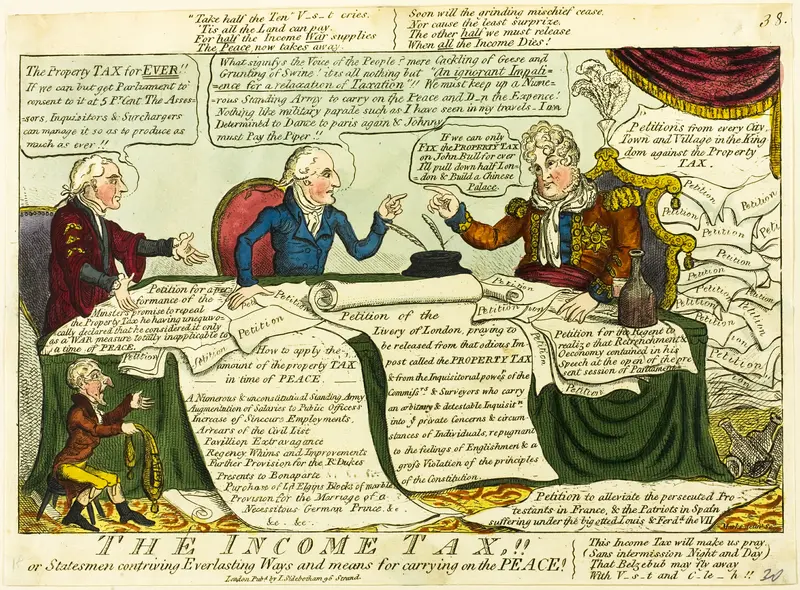 "Take half the Ten" V_s_t cries,
'Tis all the Land can pay.
For half the Income War supplies
The Peace now takes away.
Soon will the grinding mischief cease,
Nor cause the least surprize,
The other half we must release
When all the Income Dies!
38.
The Property TAX for EVER!!
If we can but get Parliament to
consent to it at 5 Pr Cent The Asses-
-sors, Inquisitors & Surchargers
can manage it so as to produce as
much as ever!!
What signifys the Voice of the People? mere Cackling of Geese and
Grunting of Swine! it is all nothing but "An ignorant Impati-
=ence for a relaxation of Taxation"!! We must keep up a Nume-
-rous Standing Army to carry on the Peace and D_n the Expence!
Nothing like military parade such as I have seen in my travels_ I am
Determined to Dance to paris again & Johnny
must Pay the Piper!!
If we can only
FIX the PROPERTY TAX
on John Bull for ever
I'll pull down half Lon-
-don & Build a Chinese
Palace.
Petitions from every City,
Town and Village in the King
dom against the Property
TAX.
Petition
Petition
Petition
Petition
Petition
Petition
Petition
Petition
Petition
Petition
Petition
Petition
Petition
Petition for a per
formance of the
Minster's promise to repeal
the Property Tax he having unequivo-
cally declared that he considered it only
as a WAR measure totally inapplicable to
a time of PEACE.
Petition
Petition
Petition
Petition
How to apply the
amount of the property TAX
in time of PEACE.
A Numerous & unconstitutional Standing Army
Augmentation of Salaries to Public Officers
Increase of Sinecure Employments,
Arrears of the Civil List
Pavillion Extravagance
Regency Whims and Improvements
Further Provision for the R. Dukes
Presents to Bonaparte
Purchase of Ld Elgins Blocks of marble
Provision for the Marriage of a
Necessitous German Prince. &c.
&c. &c.
Petition of the
Livery of London, praying to
be released from that odious Im
post called the PROPERTY TAX
& from the Inquisitorial powers of the
Commissrs & Surveyors who carry
an arbitrary & detestable Inquisitn
into ye private Concerns & circum
stances of Individuals, repugnant
to the feelings of Englishmen & a
gross Violation of the principles
of the Constitution.
Petition
Petition
Petition for the Regent to
realize that Retrenchment &
Oeconomy contained in his
Speech at the open of the pre
sent session of Parliament.
Petition
Petition to alleviate the persecuted Pro-
testants in France, & the Patriots in Spain
suffering under the bigotted Louis & Ferdd the VII
THE INCOME TAX,!!
or Statesmen contriving Everlasting Ways and means for carrying on the PEACE!
London Pubd by I. Sidebotham 96 Strand.
This Income Tax will make us pray,
(Sans intermission Night and Day)
That Belzebub may fly away
With V_s_t and C_le_h!!
30